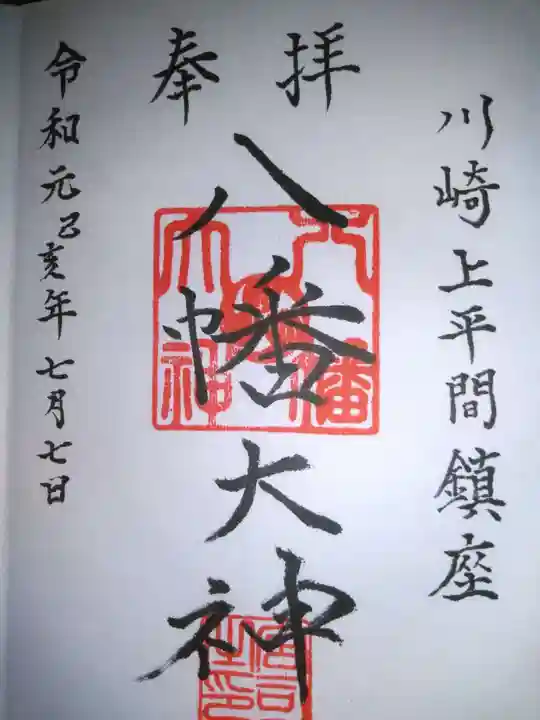 川崎上平間鎮座
奉拝
八幡大神
八幡
大神
令和元己亥年七月七日